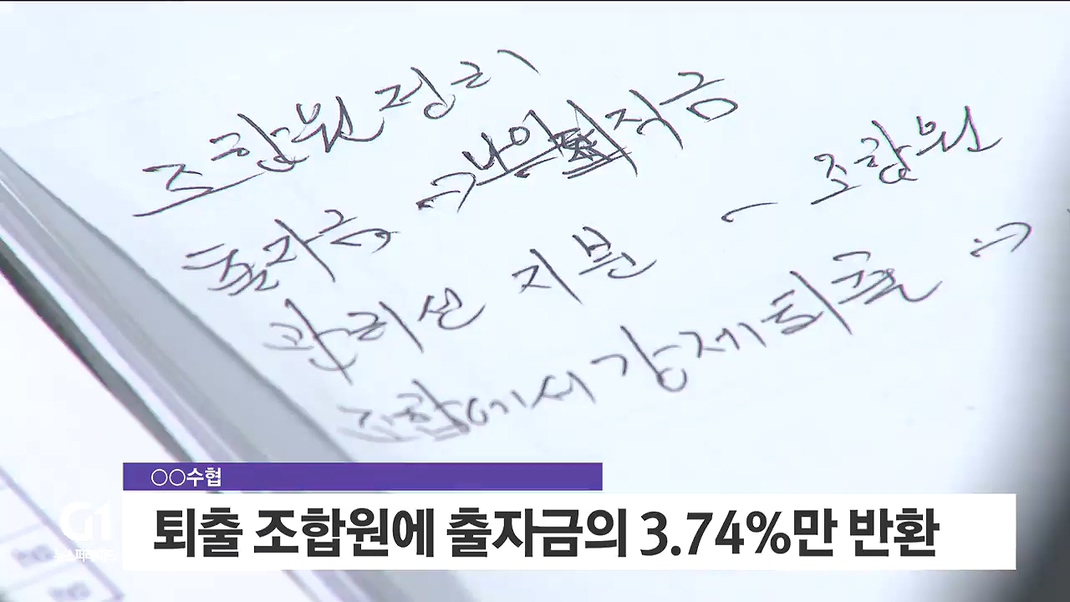 조합원 정리
출자금 → 나의 적금
관리선 지분 - 조합원
조합에서 강제퇴출 →
○○수협
퇴출 조합원에 출자금의 3.74%만 반환
G1